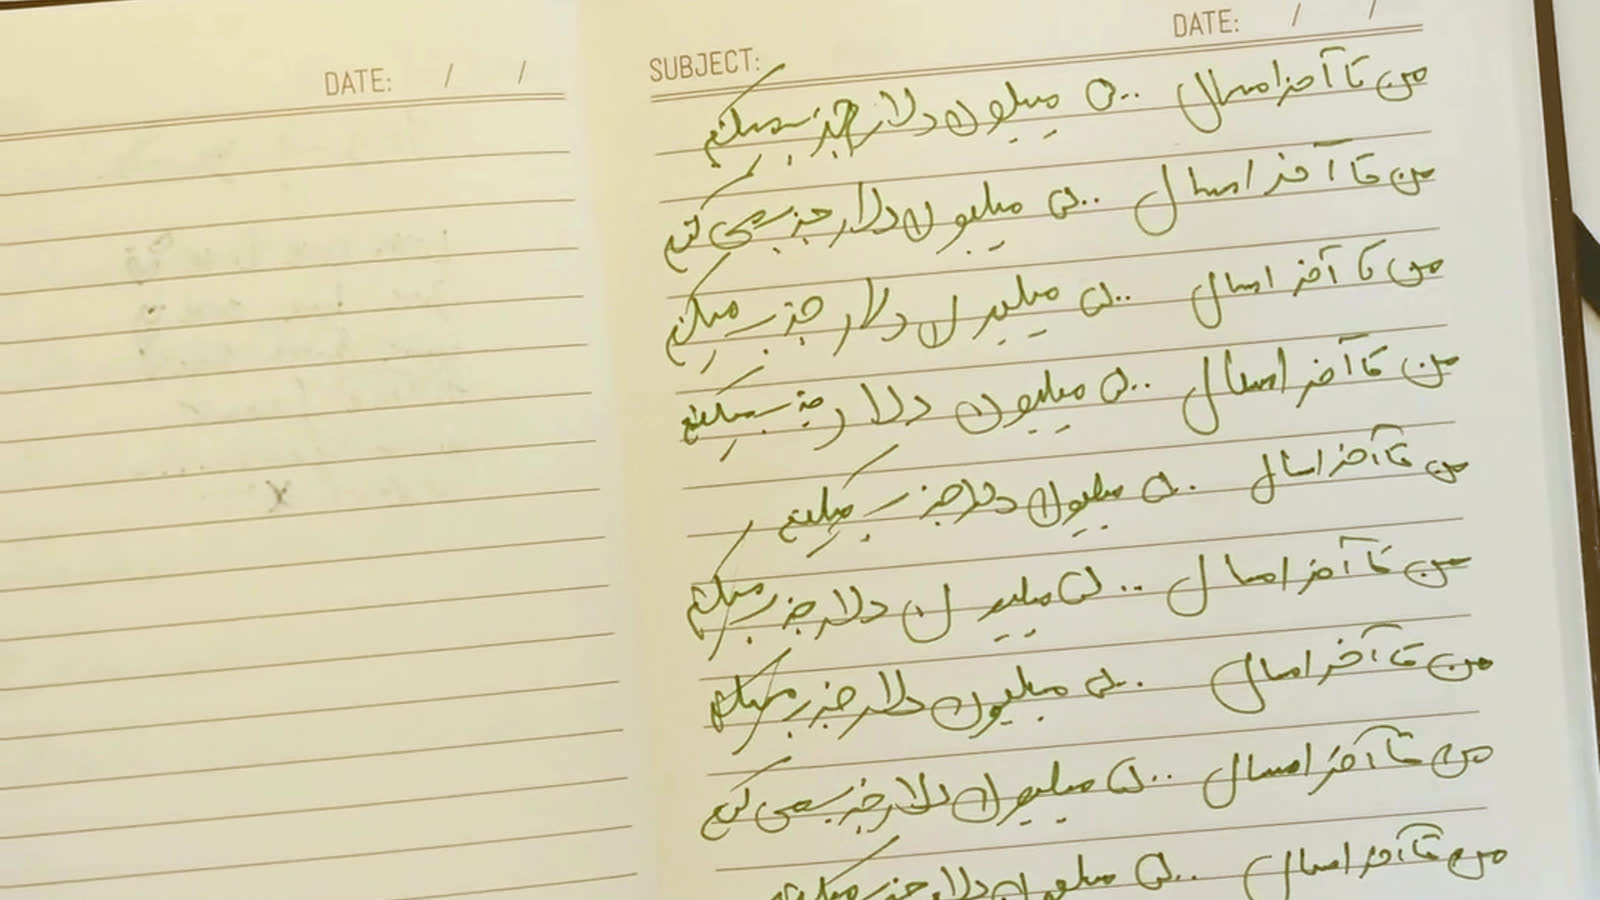 DATE: / /
SUBJECT:
DATE: / /
من تا آخر امسال ۵۰۰ میلیون دلار جذب میکنم
من تا آخر امسال ۵۰۰ میلیون دلار جذب می کنم
من تا آخر امسال ۵۰۰ میلیون دلار جذب میکنم
من تا آخر امسال ۵۰۰ میلیون دلار جذب میکنم
من تا آخر امسال ۵۰ میلیون دلار جذب میکنم
من تا آخر امسال ۵۰۰ میلیون دلار جذب میکنم
من تا آخر امسال ۵۰۰ میلیون دلار جذب میکنم
من تا آخر امسال ۵۰۰ میلیون دلار جذب می کنم
من تا آخر امسال ۵۰۰ میلیون دلار جذب میکنم